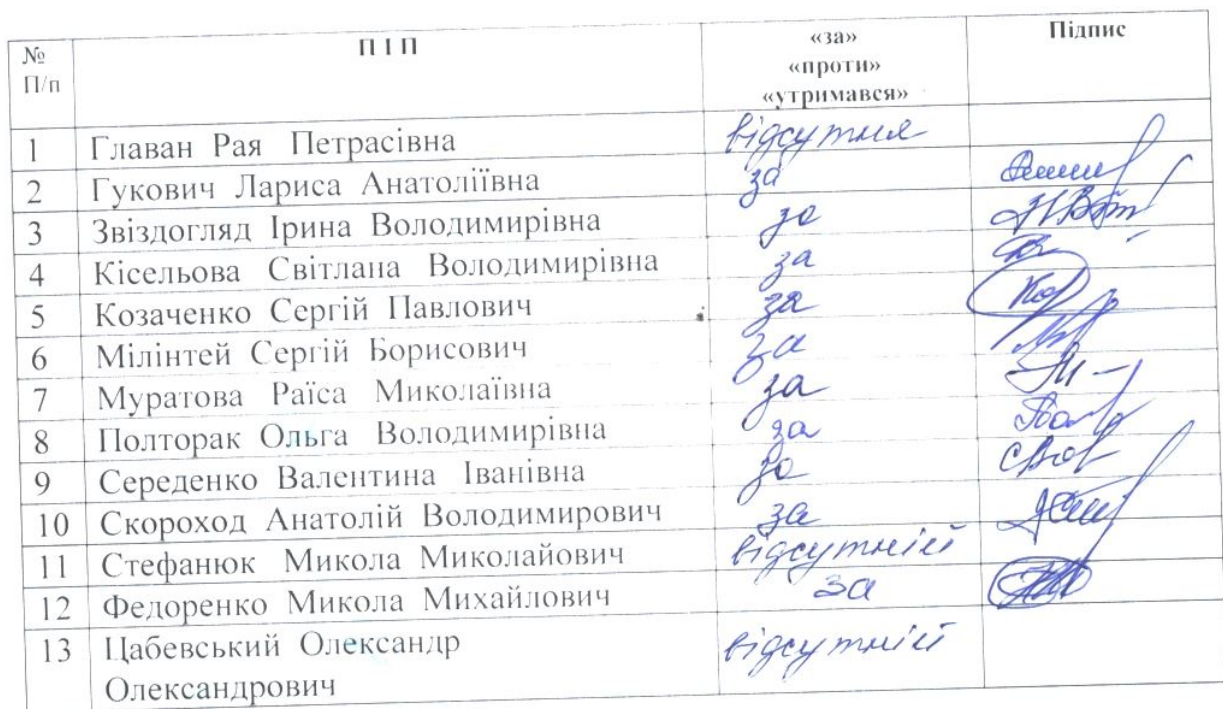 № П/п П І П «за» «проти» «утримався» Підпис
1 Главан Рая Петрасівна відсутня
2 Гукович Лариса Анатоліївна за
3 Звіздогляд Ірина Володимирівна за
4 Кісельова Світлана Володимирівна за
5 Козаченко Сергій Павлович за
6 Мілінтей Сергій Борисович за
7 Муратова Раїса Миколаївна за
8 Полторак Ольга Володимирівна за
9 Середенко Валентина Іванівна за
10 Скороход Анатолій Володимирович за
11 Стефанюк Микола Миколайович відсутній
12 Федоренко Микола Михайлович за
13 Цабевський Олександр відсутній
Олександрович